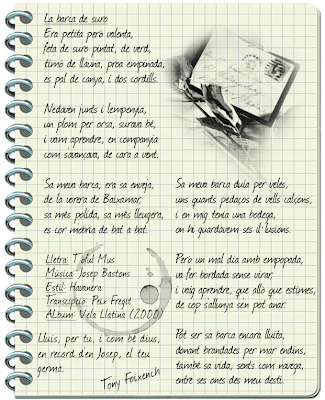 La barca de suro
Era petita però valenta,
feta de suro pintat, de verd,
timó de llauna, proa empinada,
es pal de canya, i dos cordills.
Nedàvem junts i l'empenyia,
un plom per orsa, surava bé,
i vam aprendre, en companyia
com s'avançava, de cara a vent.
Sa meva barca, era sa enveja,
de la vorera de Baixamar,
sa més polida, sa més lleugera,
es cor m'obria de bat a bat.
Lletra: Tòful Mus
Música: Josep Bastons
Estil: Havanera
Transcripció: Peix Fregit
Àlbum: Vela Llatina (2000)
Lluís, per tu, i com bé dius,
en record d'en Josep, el teu
germà.
Tony Foixench
Sa meva barca duia per veles,
uns quants pedaços de vells calçons,
i en mig tenia una bodega,
on hi guardavem ses il·lusions.
Però un mal dia amb empopada,
va fer bordada sense virar,
i vaig aprendre, que allò que estimes,
de cop s'allunya se'n pot anar.
Pot ser sa barca encara lluita,
donant brandades per mar endins,
també sa vida, sents com navega,
entre ses ones des meu destí.